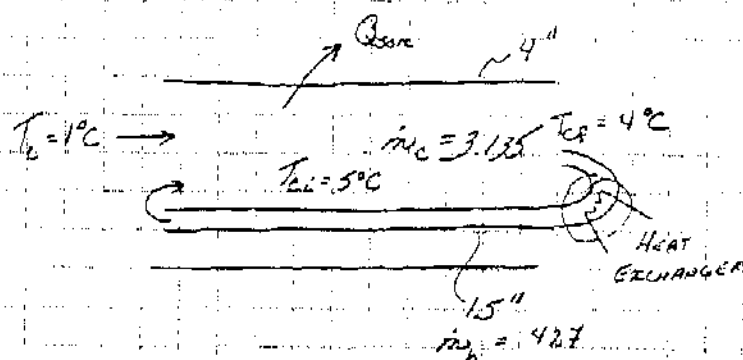 4"
T = 1°C
ṁc = 3.135
Tcf = 4°C
Tci = .5°C
HEAT
EXCHANGER
1.5"
ṁh = .427